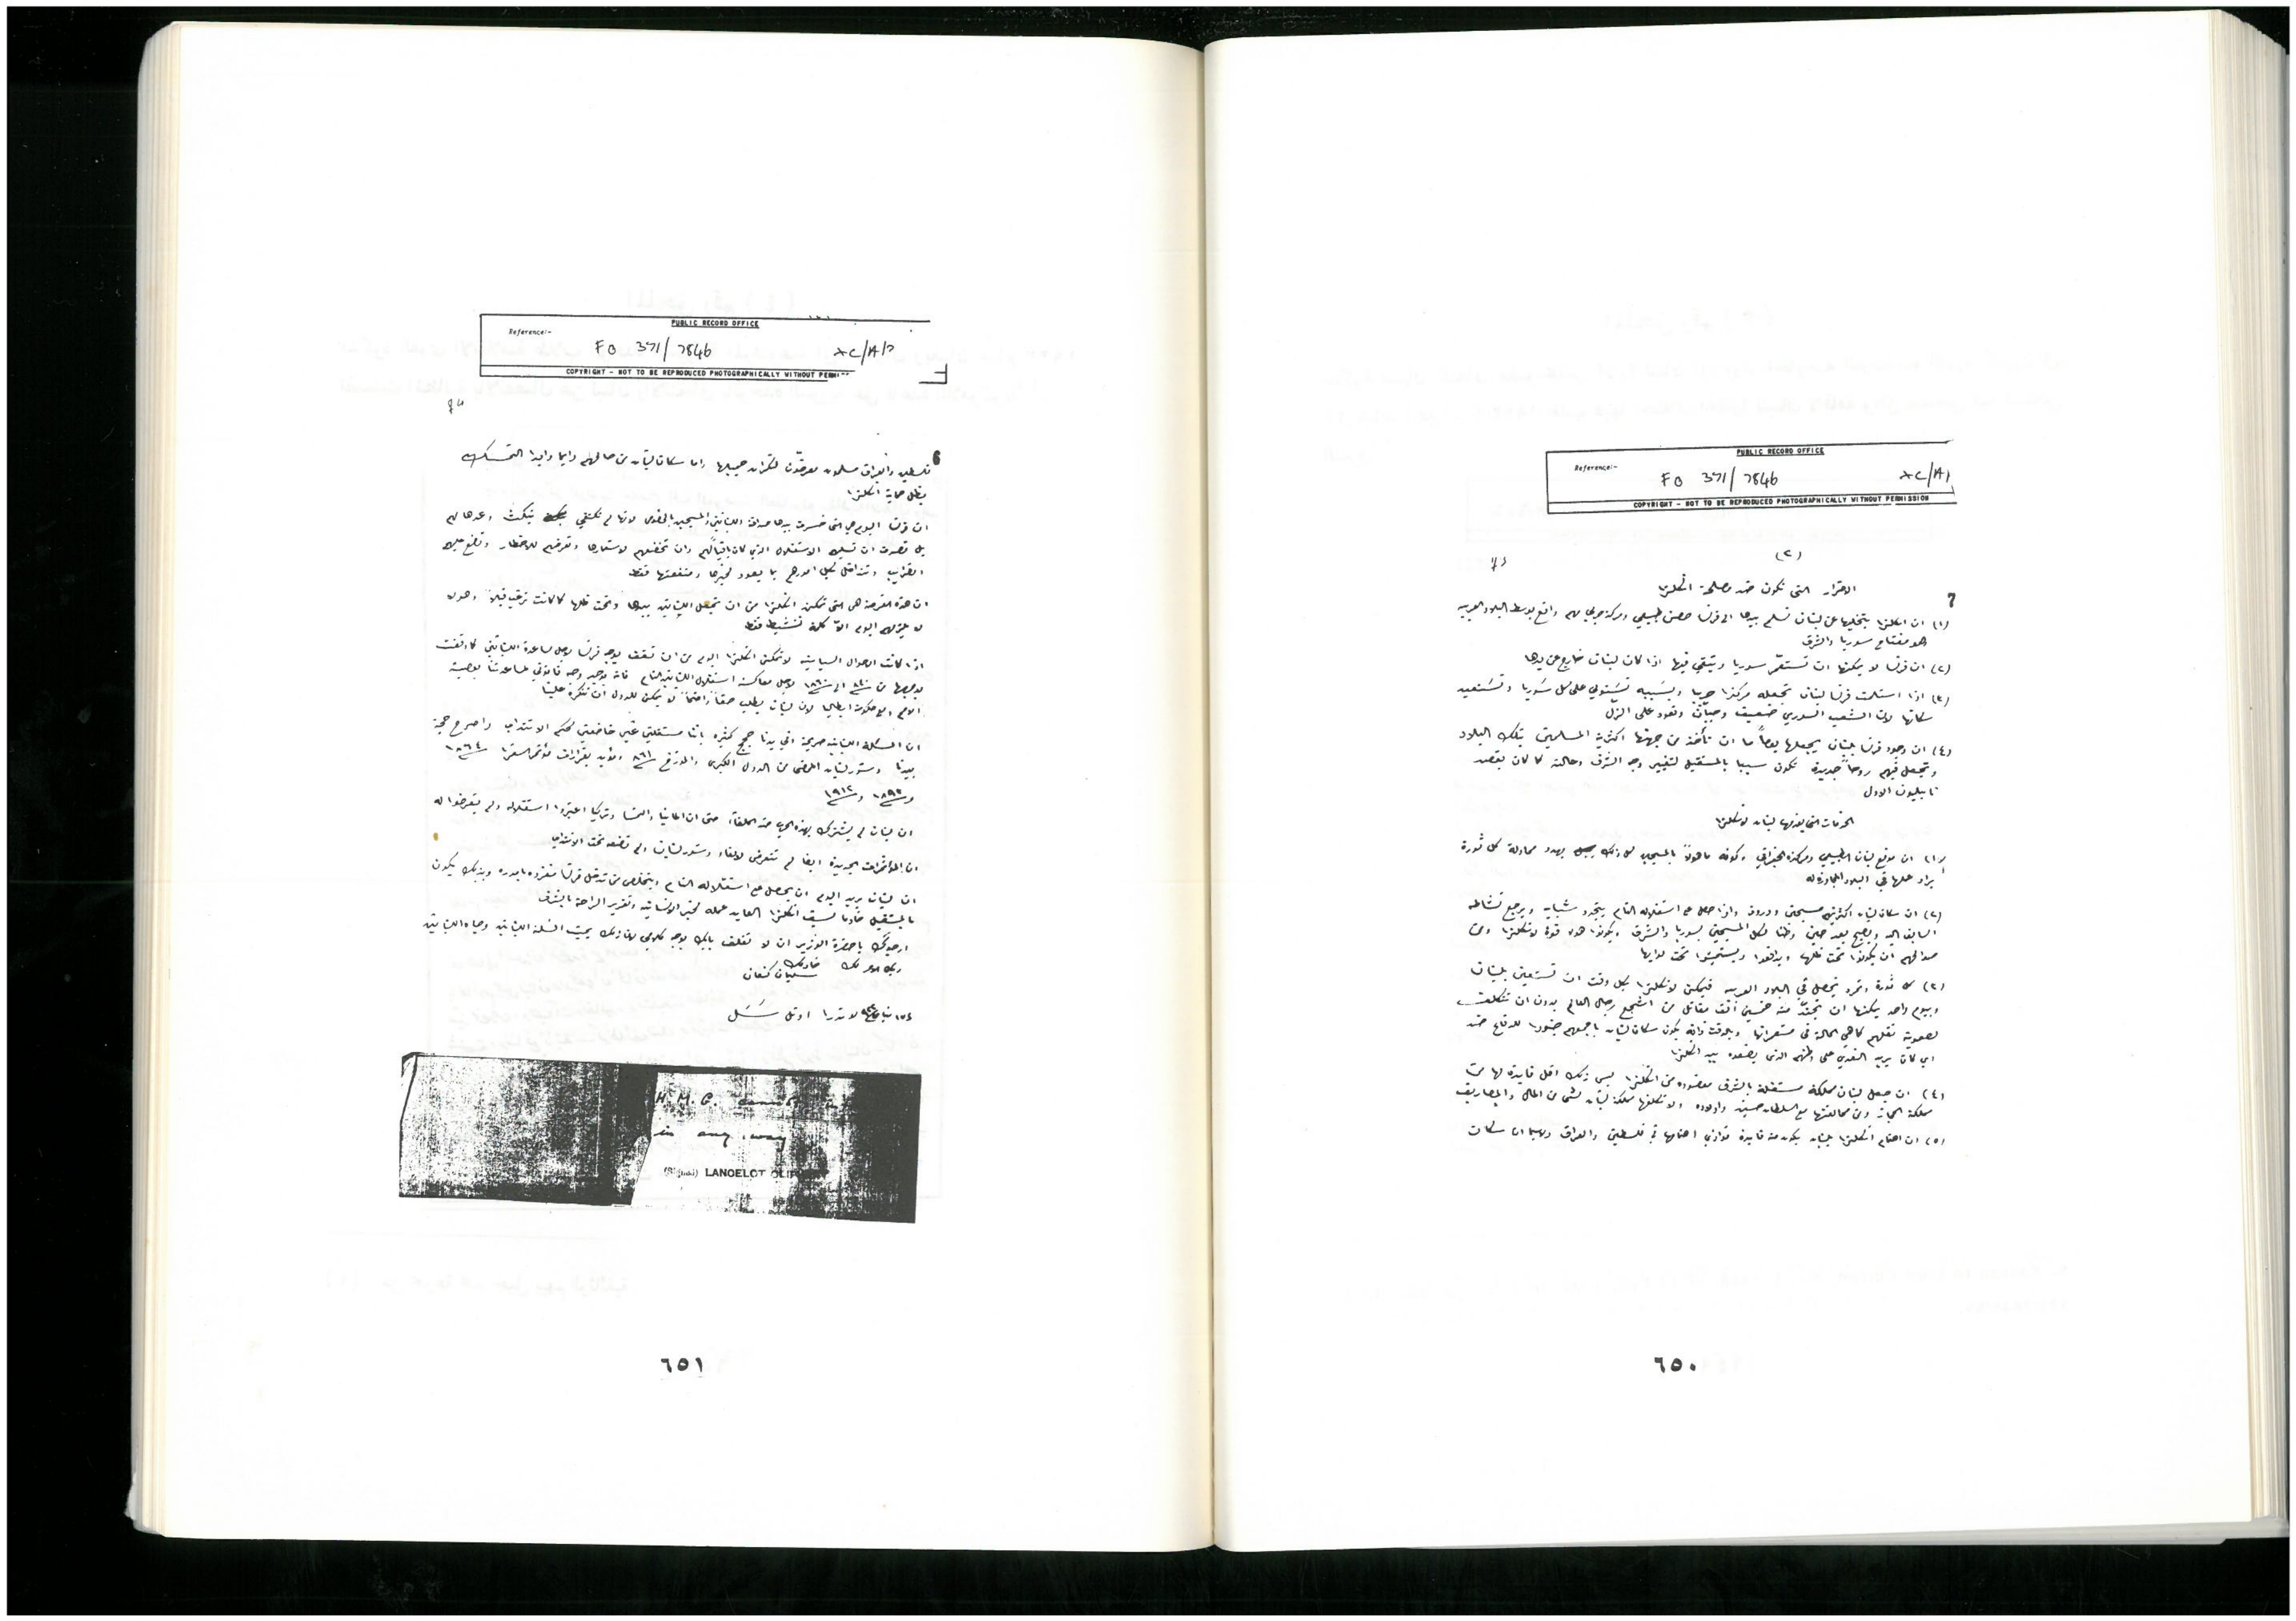 PUBLIC RECORD OFFICE
Reference:-
FO 371/7846
COPYRIGHT - NOT TO BE REPRODUCED PHOTOGRAPHICALLY WITHOUT PERMISSION
(٢)
7
الاضرار التي تكون ضد مصلحة انكلترا
(١) ان انكلترا بتخليها عن لبنان تسلم بيدها الى فرنسا حصن طبيعي ومركز حربي مهم واقع بوسط البلاد العربيه
هو مفتاح سوريا والشرق
(٢) ان فرنسا لا يمكنها ان تستعمر سوريا وتبقى فيها اذا كان لبنان خارج عن يدها
(٣) اذا استلمت فرنسا لبنان تجعله مركزا حربيا وبسببه تستولي على كل سوريا وتستعبد
سكانها لان الشعب السوري ضعيف وجبان وتعود على الذل
(٤) ان وجود فرنسا بلبنان يجعلها يوماً ما ان تأخذ من جهتها اكثرية المسلمين بتلك البلاد
وتجعل فيهم روحاً جديدة تكون سببا بالمستقبل لتغيير وجه الشرق وحالته كما كان يقصد
نابليون الاول
الخدمات التي يقدمها لبنان لانكلترا
(١) ان موقع لبنان الطبيعي ومركزه الجغرافي وكونه ماهولاً بالمسيحيين كل ذلك يهدد محاولة كل ثورة
يراد عملها في البلاد المجاورة له
(٢) ان سكان لبنان اكثرهم مسيحيين ودروز واذا حصل على استقلاله التام يتجدد شبابه ويرجع نشاطه
السابق اليه ويصبح بعد حين وطناً لكل المسيحيين بسوريا والشرق ويكونوا هم قوة لانكلترا ومن
صوالحهم ان يكونوا تحت ظلها ويدافعوا ويستميتوا تحت لوايها
(٣) كل ثورة وتمرد تحصل في البلاد العربيه فيمكن لانكلترا بكل وقت ان تستعين بلبنان
وبيوم واحد يمكنها ان تجند منه خمسين الف مقاتل من اشجع رجال العالم بدون ان تتكلف
لصعوبة نقلهم كما هي الحالة في مستعمراتها وبالوقت ذاته يكون سكان لبنان باجمعهم جنودا للدفاع ضد
اي كان يريد التعدي على وطنهم الذي يضعوه بيد انكلترا
(٤) ان جعل لبنان مملكة مستقلة بالشرق معضوده من انكلترا ليس ذلك اقل فايدة لها من
مملكة الحجاز ومن محالفتها مع السلطان حسين واولاده ولا تكلفها مملكة لبنان شيئا من المال والمصاريف
(٥) ان اهتمام انكلترا بلبنان يكون منه فايدة توازي اهتمامها في فلسطين والعراق ولاسيما ان سكان
٦٥٠
PUBLIC RECORD OFFICE
Reference:-
FO 371/7846
COPYRIGHT - NOT TO BE REPRODUCED PHOTOGRAPHICALLY WITHOUT
فلسطين والعراق مسلمون معرضون لنكران جميلها واما سكان لبنان من صالحهم دايما وابدا التمسك
بظل حماية انكلترا
ان فرنسا اليوم هي التي خسرت بيدها صداقة اللبنانيين والمسيحيين بالخصوص لانها لم تكتفي بنكث وعدها لهم
بل قصدت ان تسلبهم الاستقلال الذي كان باقياً لهم وان تخضعهم لاستعمارها وتعرضهم للاخطار وتضع عليهم
الضرايب وتتداخل بكل امورهم بما يعود لخيرها ومنفعتها فقط
ان هذه الفرصة هي التي تمكن انكلترا من ان تجعل اللبنانيين بيدها وتحت ظلها كما كانت ترغب قبلاً وهولا
لا يلزمهم اليوم الا كلمة تنشيط فقط
اذا كانت الاحوال السياسيه لا تمكن انكلترا اليوم من ان تقف بوجه فرنسا لاجل مساعدة اللبنانيين كما وقفت
بوجهها من ٨٤٠ الى ١٨٦٠ لاجل معاكسة استقلال اللبنانيين التام فانه يوجد وجه قانوني لمساعدتنا بعصبة
الامم او حكومة ايطاليا لان لبنان يطلب حقاً واضحاً لا يمكن للدول ان تنكره علينا
ان المسئلة اللبنانيه صريحة وفي يدنا حجج كثيره باننا مستقلين غير خاضعين لحكم الانتداب واصرح حجة
بيدنا دستور لبنان الممضى من الدول الكبرى والمورخ ٨٦١ والمؤيد بقرارات مؤتمر السفرا ١٨٦٤
و ١٨٩٢ و ١٩١٢
ان لبنان لم يشترك بهذه الحرب ضد الحلفاء حتى ان المانيا والنمسا وتركيا اعتبروا استقلاله ولم يتعرضوا له
ان المؤتمرات الجديدة ايضا لم تتعرض لالغاء دستور لبنان ولم تضعه تحت الانتداب
ان لبنان يريد اليوم ان يحصل على استقلاله التام ويتخلص من تدخل فرنسا منفرده باموره وبذلك يكون
بالمستقبل خادما لسيف انكلترا العايد عمله لخير الانسانيه وتعزيز الراحة بالشرق
ارجوك يا حضرة الوزير ان لا تغلق بابك بوجه كلامي لان ذلك يميت المسئلة اللبنانيه وحياة اللبنانيين
خادمك
سليمان كنعان
لوندرا اوتل سسل
H. M. G. cannot
in any way
(Signed) LANCELOT OLIPHANT
٦٥١